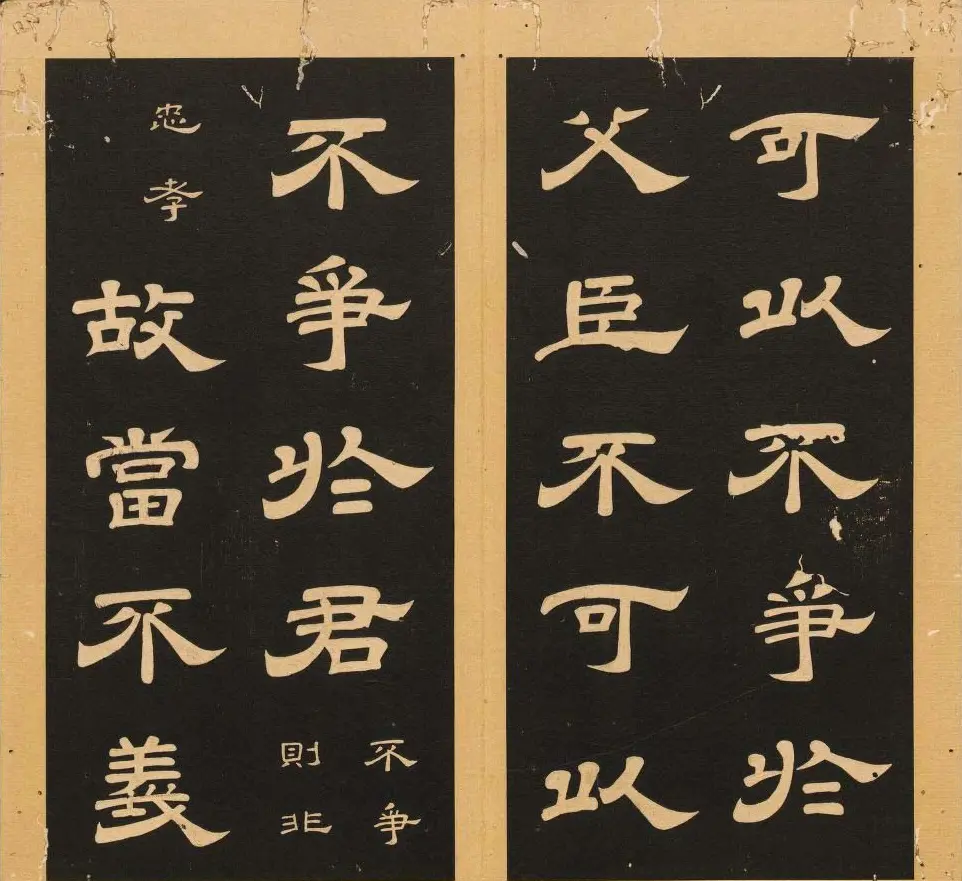 可以不爭於
父臣不可以
不爭於君不爭則非
忠孝故當不義